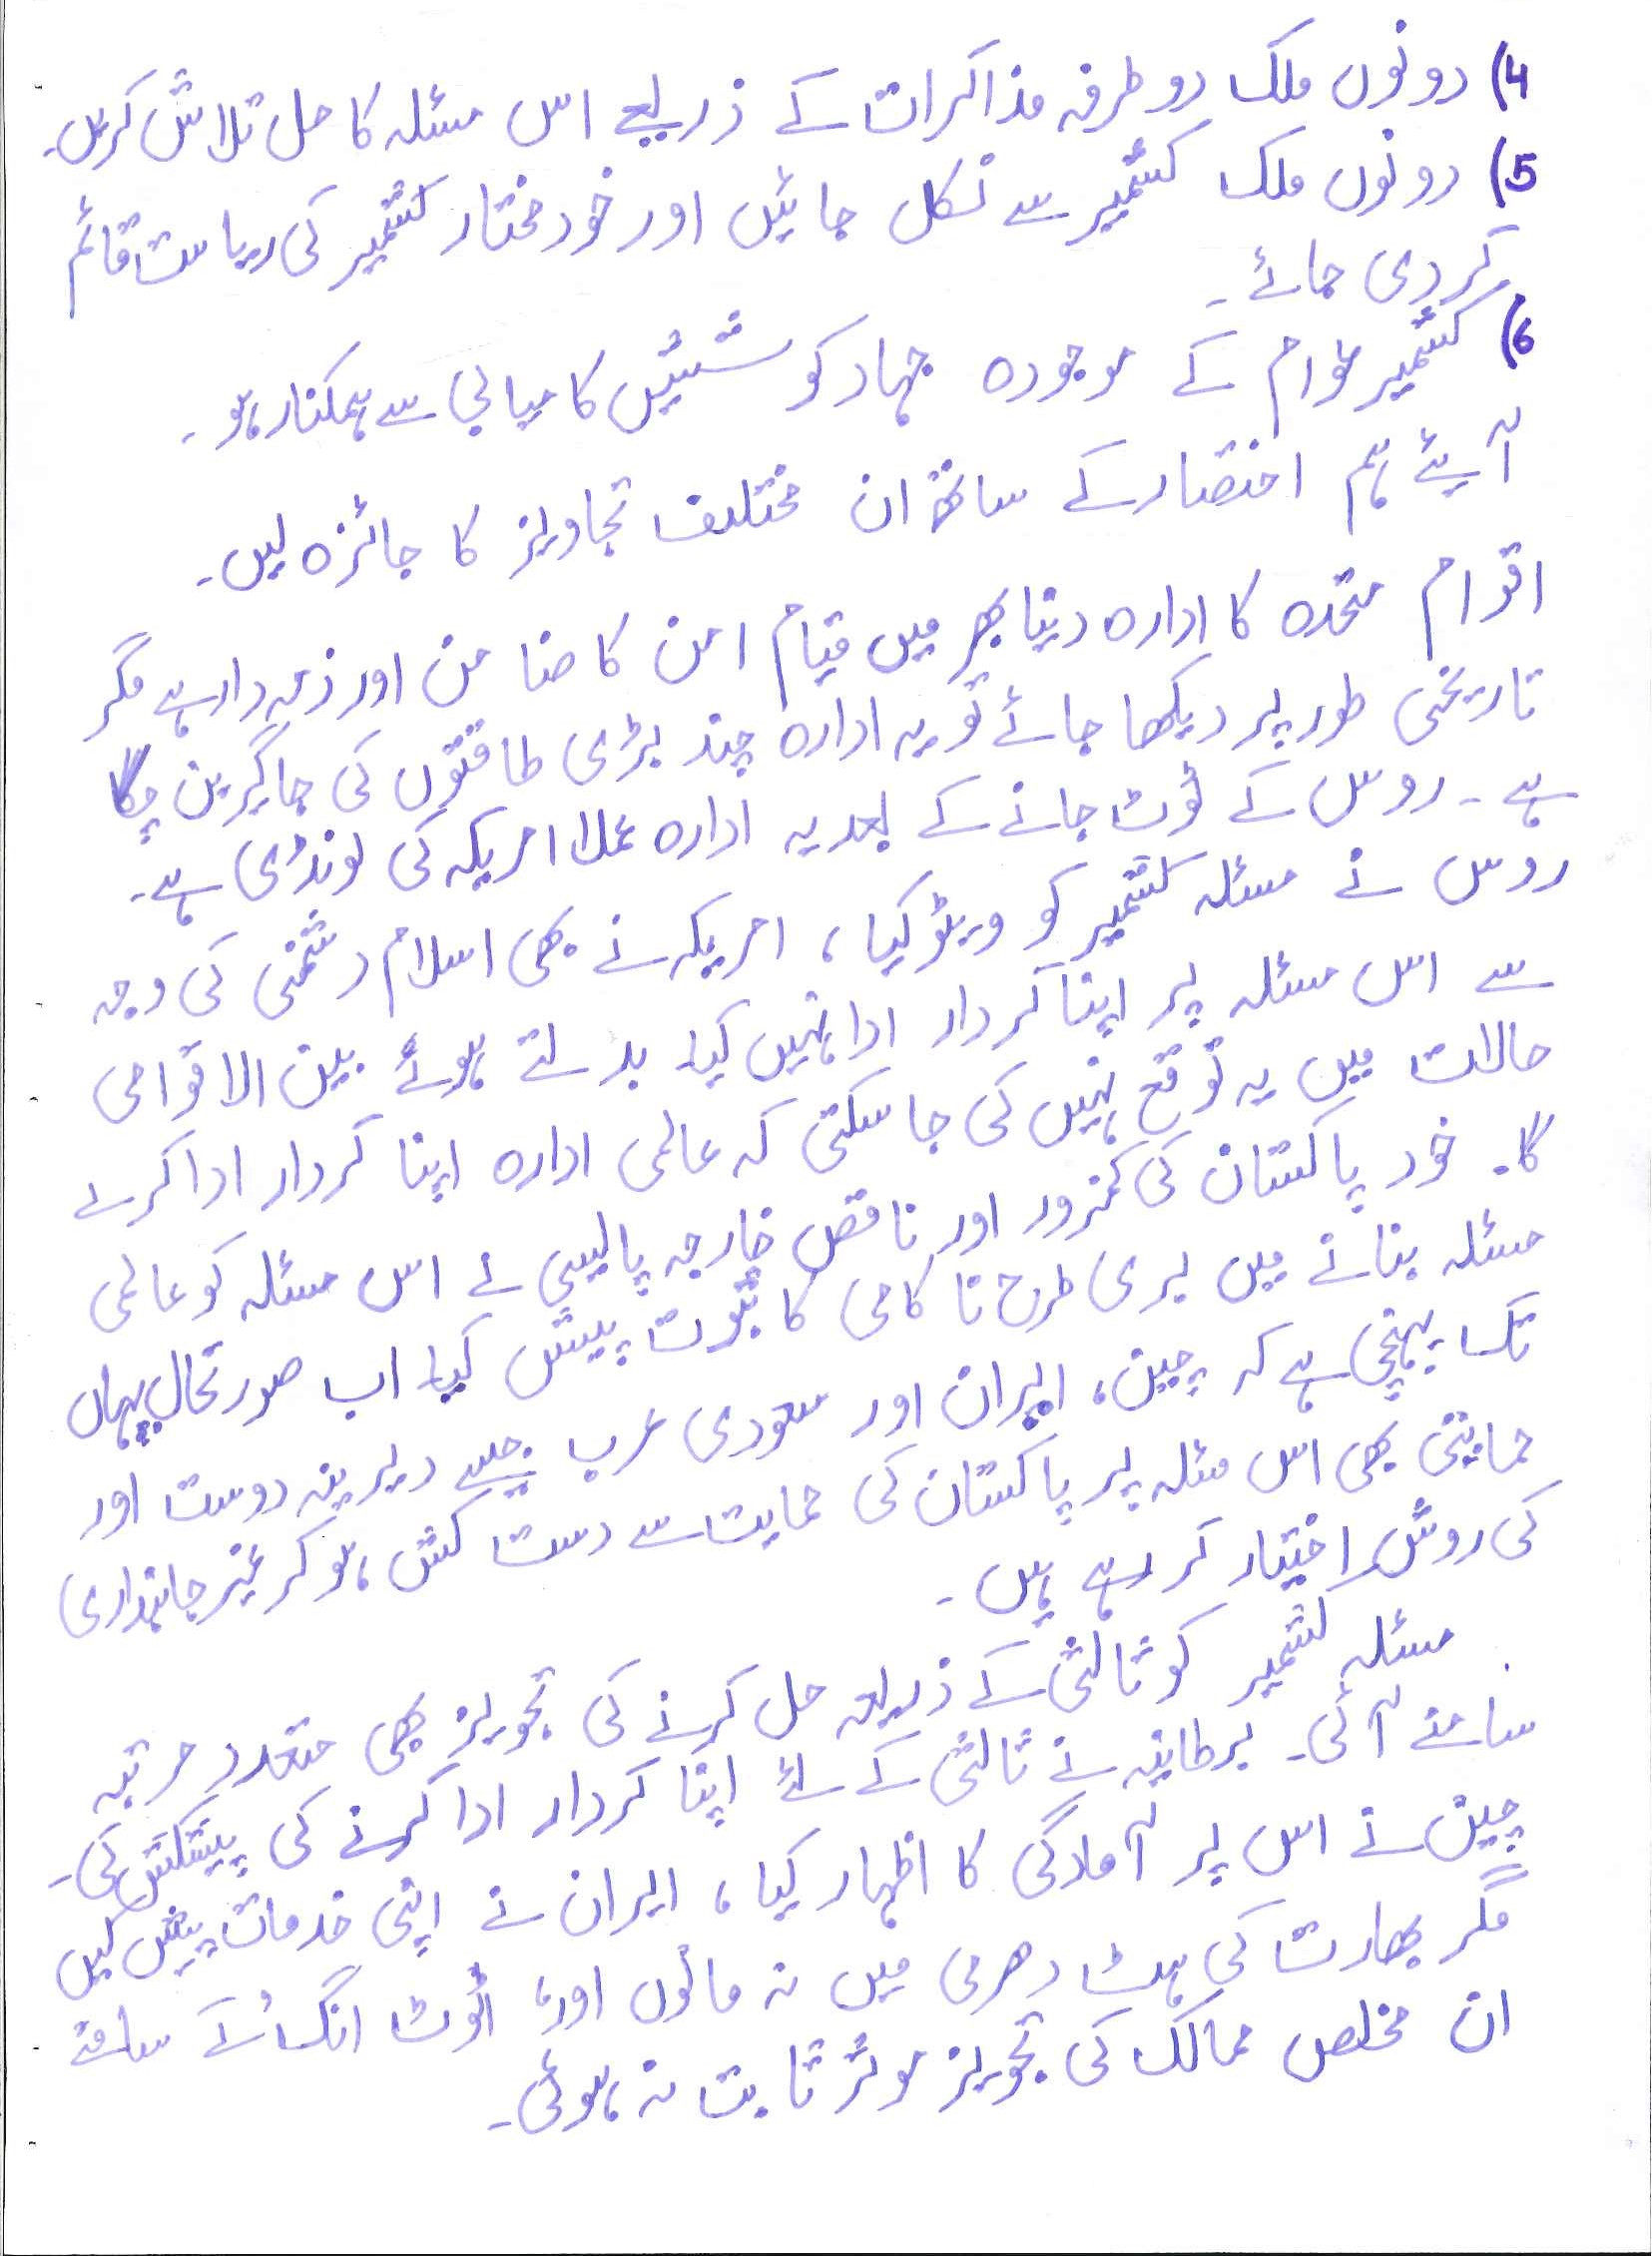 4) دونوں ملک دو طرفہ مذاکرات کے ذریعے اس مسئلہ کا حل تلاش کریں۔
5) دونوں ملک کشمیر سے نکل جائیں اور خود مختار کشمیر کی ریاست قائم
کر دی جائے۔
6) کشمیر عوام کے موجودہ جہاد کو ششیں کامیابی سے ہمکنار ہو۔
آیئے ہم اختصار کے ساتھ ان مختلف تجاویز کا جائزہ لیں۔
اقوام متحدہ کا ادارہ دنیا بھر میں قیام امن کا ضامن اور ذمہ دار ہے مگر
تاریخی طور پر دیکھا جائے تو یہ ادارہ چند بڑی طاقتوں کی جاگیر بن چکا
ہے۔ روس کے ٹوٹ جانے کے بعد یہ ادارہ عملا امریکہ کی لونڈی ہے۔
روس نے مسئلہ کشمیر کو ویٹو کیا، امریکہ نے بھی اسلام دشمنی کی وجہ
سے اس مسئلہ پر اپنا کردار ادا نہیں کیا۔ بدلتے ہوئے بین الاقوامی
حالات میں یہ توقع نہیں کی جا سکتی کہ عالمی ادارہ اپنا کردار ادا کرے
گا۔ خود پاکستان کی کمزور اور ناقص خارجہ پالیسی نے اس مسئلہ کو عالمی
مسئلہ بنانے میں بری طرح ناکامی کا ثبوت پیش کیا۔ اب صورتحال یہاں
تک پہنچی ہے کہ چین، ایران اور سعودی عرب جیسے دیرینہ دوست اور
حمایتی بھی اس مسئلہ پر پاکستان کی حمایت سے دست کش ہو کر غیر جانبداری
کی روش اختیار کر رہے ہیں۔
مسئلہ کشمیر کو ثالثی کے ذریعہ حل کرنے کی تجویز بھی متعدد مرتبہ
سامنے آئی۔ برطانیہ نے ثالثی کے لئے اپنا کردار ادا کرنے کی پیشکش کی۔
چین نے اس پر آمادگی کا اظہار کیا، ایران نے اپنی خدمات پیش کیں
مگر بھارت کی ہٹ دھرمی میں نہ مانوں اور، اٹوٹ انگ کے سامنے
ان مخلص ممالک کی تجویز موثر ثابت نہ ہوئی۔